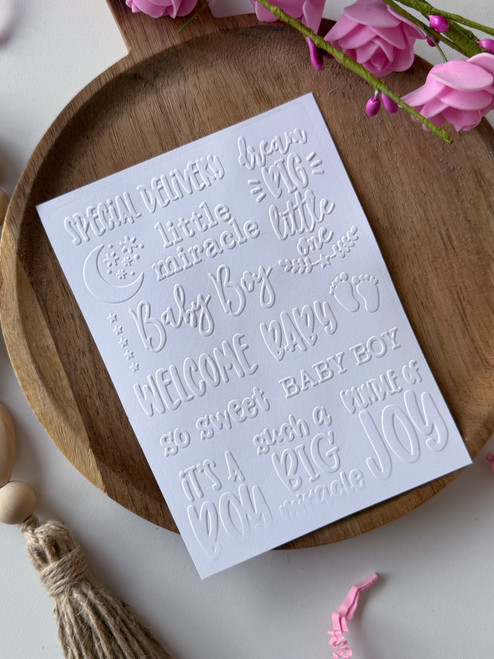 SPECIAL DELIVERY
dream
BIG
little
one
little
miracle
Baby Boy
WELCOME BABY
so sweet
BABY BOY
IT'S A
BOY
such a
BIG
miracle
BUNDLE OF
JOY